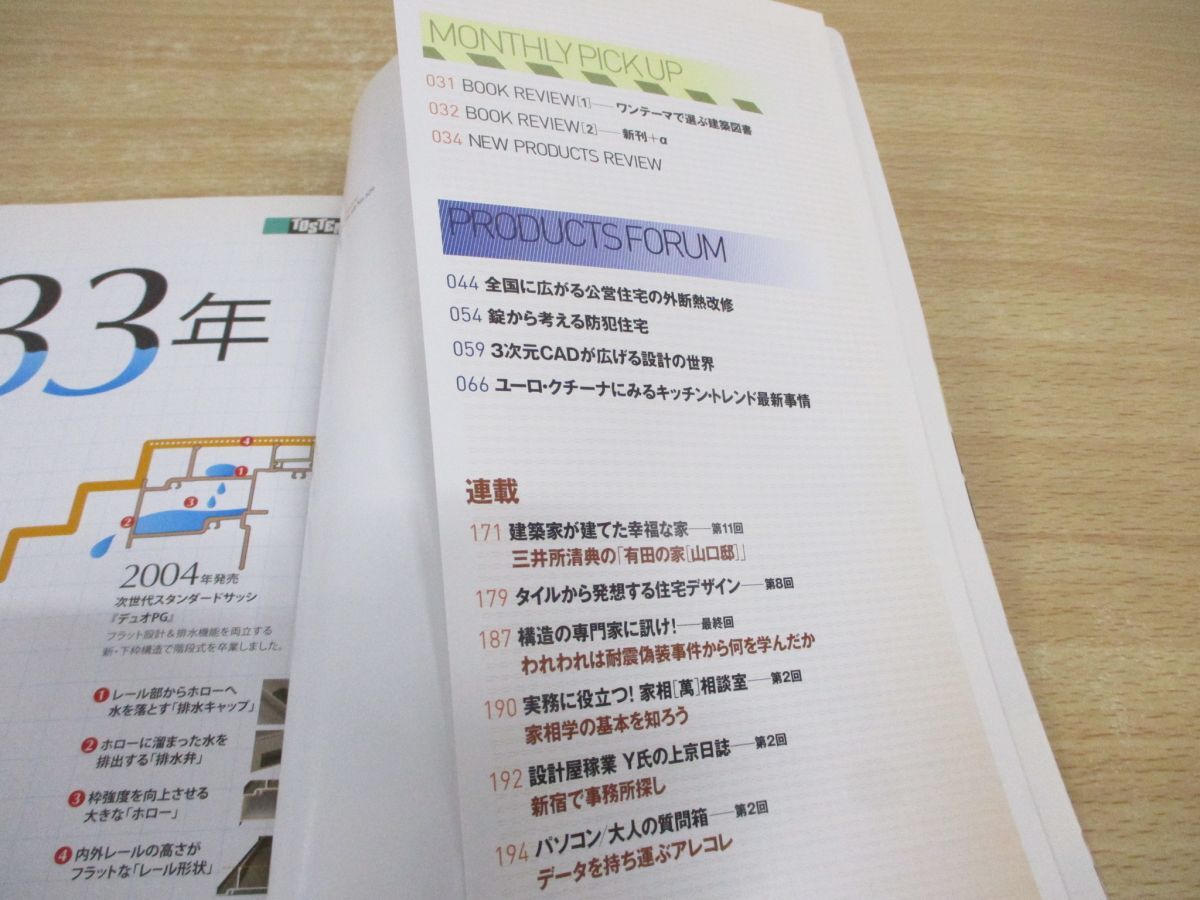 TOSTE
33年
4
1
3
2
2004年発売
次世代スタンダードサッシ
『デュオPG』
フラット設計&排水機能を両立する
新・下枠構造で階段式を卒業しました。
1 レール部からホローへ
水を落とす「排水キャップ」
2 ホローに溜まった水を
排出する「排水弁」
3 枠強度を向上させる
大きな「ホロー」
4 内外レールの高さが
フラットな「レール形状」
MONTHLY PICK UP
031 BOOK REVIEW[1]――ワンテーマで選ぶ建築図書
032 BOOK REVIEW[2]――新刊+α
034 NEW PRODUCTS REVIEW
PRODUCTS FORUM
044 全国に広がる公営住宅の外断熱改修
054 錠から考える防犯住宅
059 3次元CADが広げる設計の世界
066 ユーロ・クチーナにみるキッチン・トレンド最新事情
連載
171 建築家が建てた幸福な家――第11回
三井所清典の「有田の家[山口邸]」
179 タイルから発想する住宅デザイン――第8回
187 構造の専門家に訊け!――最終回
われわれは耐震偽装事件から何を学んだか
190 実務に役立つ! 家相[萬]相談室――第2回
家相学の基本を知ろう
192 設計屋稼業 Y氏の上京日誌――第2回
新宿で事務所探し
194 パソコン/大人の質問箱――第2回
データを持ち運ぶアレコレ